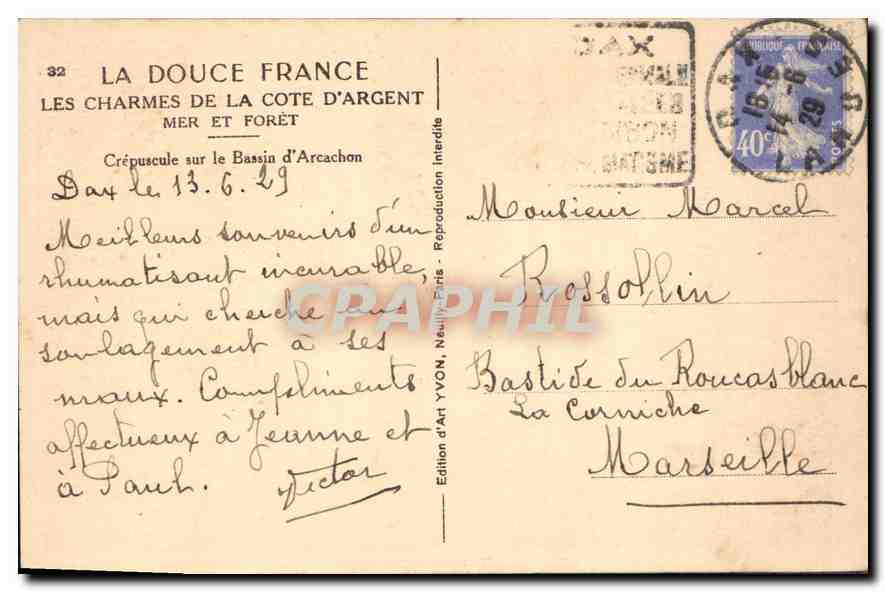 32
LA DOUCE FRANCE
LES CHARMES DE LA COTE D'ARGENT
MER ET FORÊT
Crépuscule sur le Bassin d'Arcachon
Dax le 13.6.29
Meilleurs souvenirs d'un
rhumatisant incurable,
mais qui cherche un
soulagement à ses
maux. Compliments
affectueux à Jeanne et
à Paul.
Victor
Edition d'Art YVON, Neuilly-Paris - Reproduction Interdite
DAX
REPUBLIQUE FRANÇAISE
40c
POSTES
DAX
16-15
14-6
29
LANDES
Monsieur Marcel
Rossollin
Bastide du Roucasblanc
La Corniche
Marseille
CPAPHIL